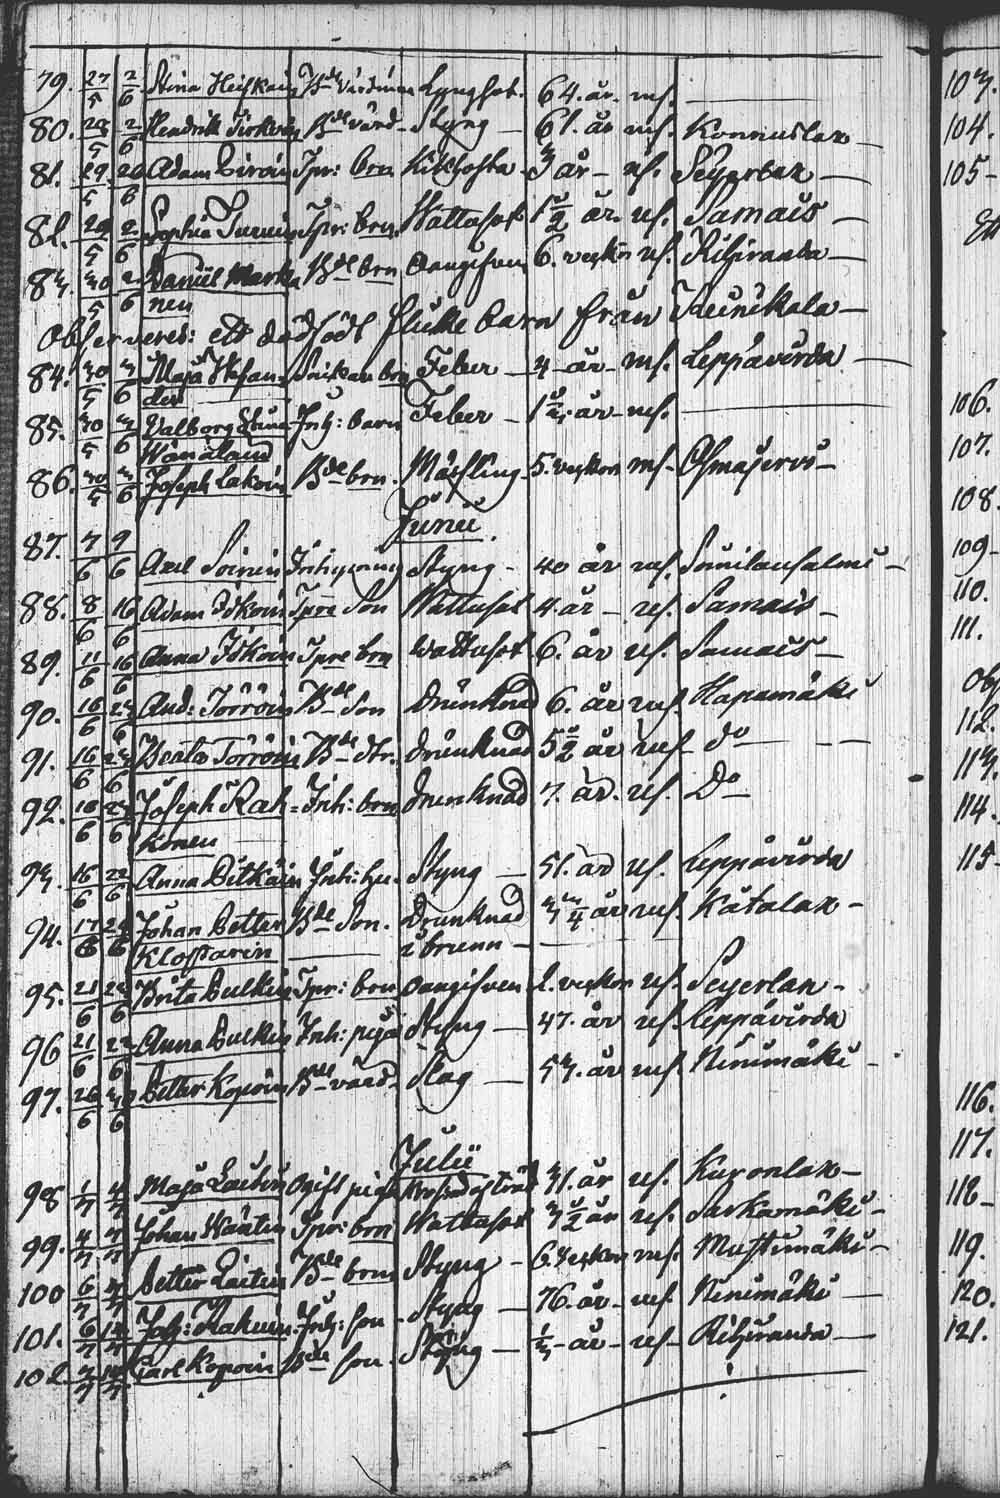 79. 27/5 2/6 Stina Heiskain Bde värdinna Lungsot. 64. år. ms.
80. 28/5 2/6 Hendrik Tirkoin Bde värd - Styng - 61. år ms. Konnuslax -
81. 29/5 2/6 Adam Piroin Tpr: brn kikhosta 3 år - ms. Seyerlax -
82. 29/5 2/6 Sophia Turuin Tpr: brn. Wattusot 1 1/2 år. ms. Samais -
83. 30/5 2/6 Daniel Markka Bde brn Oangifven 6. veckor ms. Rihiranda -
nen
observeras: ett dödfödt flicke barn från Keinikala -
84. 30/5 3/6 Maja Stefan= Feber - 4 - år - ms. Leppävirda -
der
85. 30/5 3/6 Valborg Stina Inh: barn Feber - 1 år - ms.
Wänäland
86. 30/5 3/6 Joseph Lakoin Bde brn. Mässling 5. veckor ms. Osmajervi -
Junii.
87. 7/6 9/6 Axel Soinin Styng - 40 år ms. Soinilansalmi -
88. 8/6 16/6 Adam Ikoin Tpre Son Wattusot 4. år - ms. Samais -
89. 11/6 16/6 Anna Ikoin Tpre brn Wattusot 6. år ms. Samais -
90. 16/6 23/6 And: Törröin Bde Son Drunknad 6. år ms. Hapamäki
91. 16/6 23/6 Beata Törröin Bde dtr. Drunknad 5 1/2 år ms. do
92. 16/6 23/6 Joseph Rah= Inh: brn Drunknad 7. år. ms. Do
konen
93. 16/6 22/6 Anna Pitkäin Inh: hu. Styng - 51. år ms. Leppävirda
94. 17/6 24/6 Johan Petter Bde Son. Drunknad 3/4 år ms. Kåtalax -
Klossarin i brunn -
95. 21/6 23/6 Brita Pulkin Tpr: brn Oangifven 2. veckor ms. Seyerlax -
96 21/6 23/6 Anna Pulkin Inh: piga Styng - 47. år ms. Leppävirda
97. 26/6 30/6 Petter Kopoin Bde värd Slag - 53. år ms. Ninimäki -
Julii
98 1/7 4/7 Maja Laitin Ogift piga 31. år ms. Kuronlax -
99. 4/7 7/7 Johan Wäätäin Tpr: brn Wattusot 3 1/2 år ms. Sarkamäki -
100 6/7 7/7 Petter Laitin Bde barn Styng - 6. veckor ms. Mustinmäki -
101. 6/7 14/7 Joh: Kakuin. Inh: son - Styng - 76. år - ms. Ninimäki -
102 7/7 14/7 Carl Kopoin Bde son. Styng - 1/3 - år - ms - Rihiranda -
103.
104.
105 -
106.
107.
108.
109 -
110.
111.
112.
113.
114.
115
116.
117.
118 -
119.
120.
121.